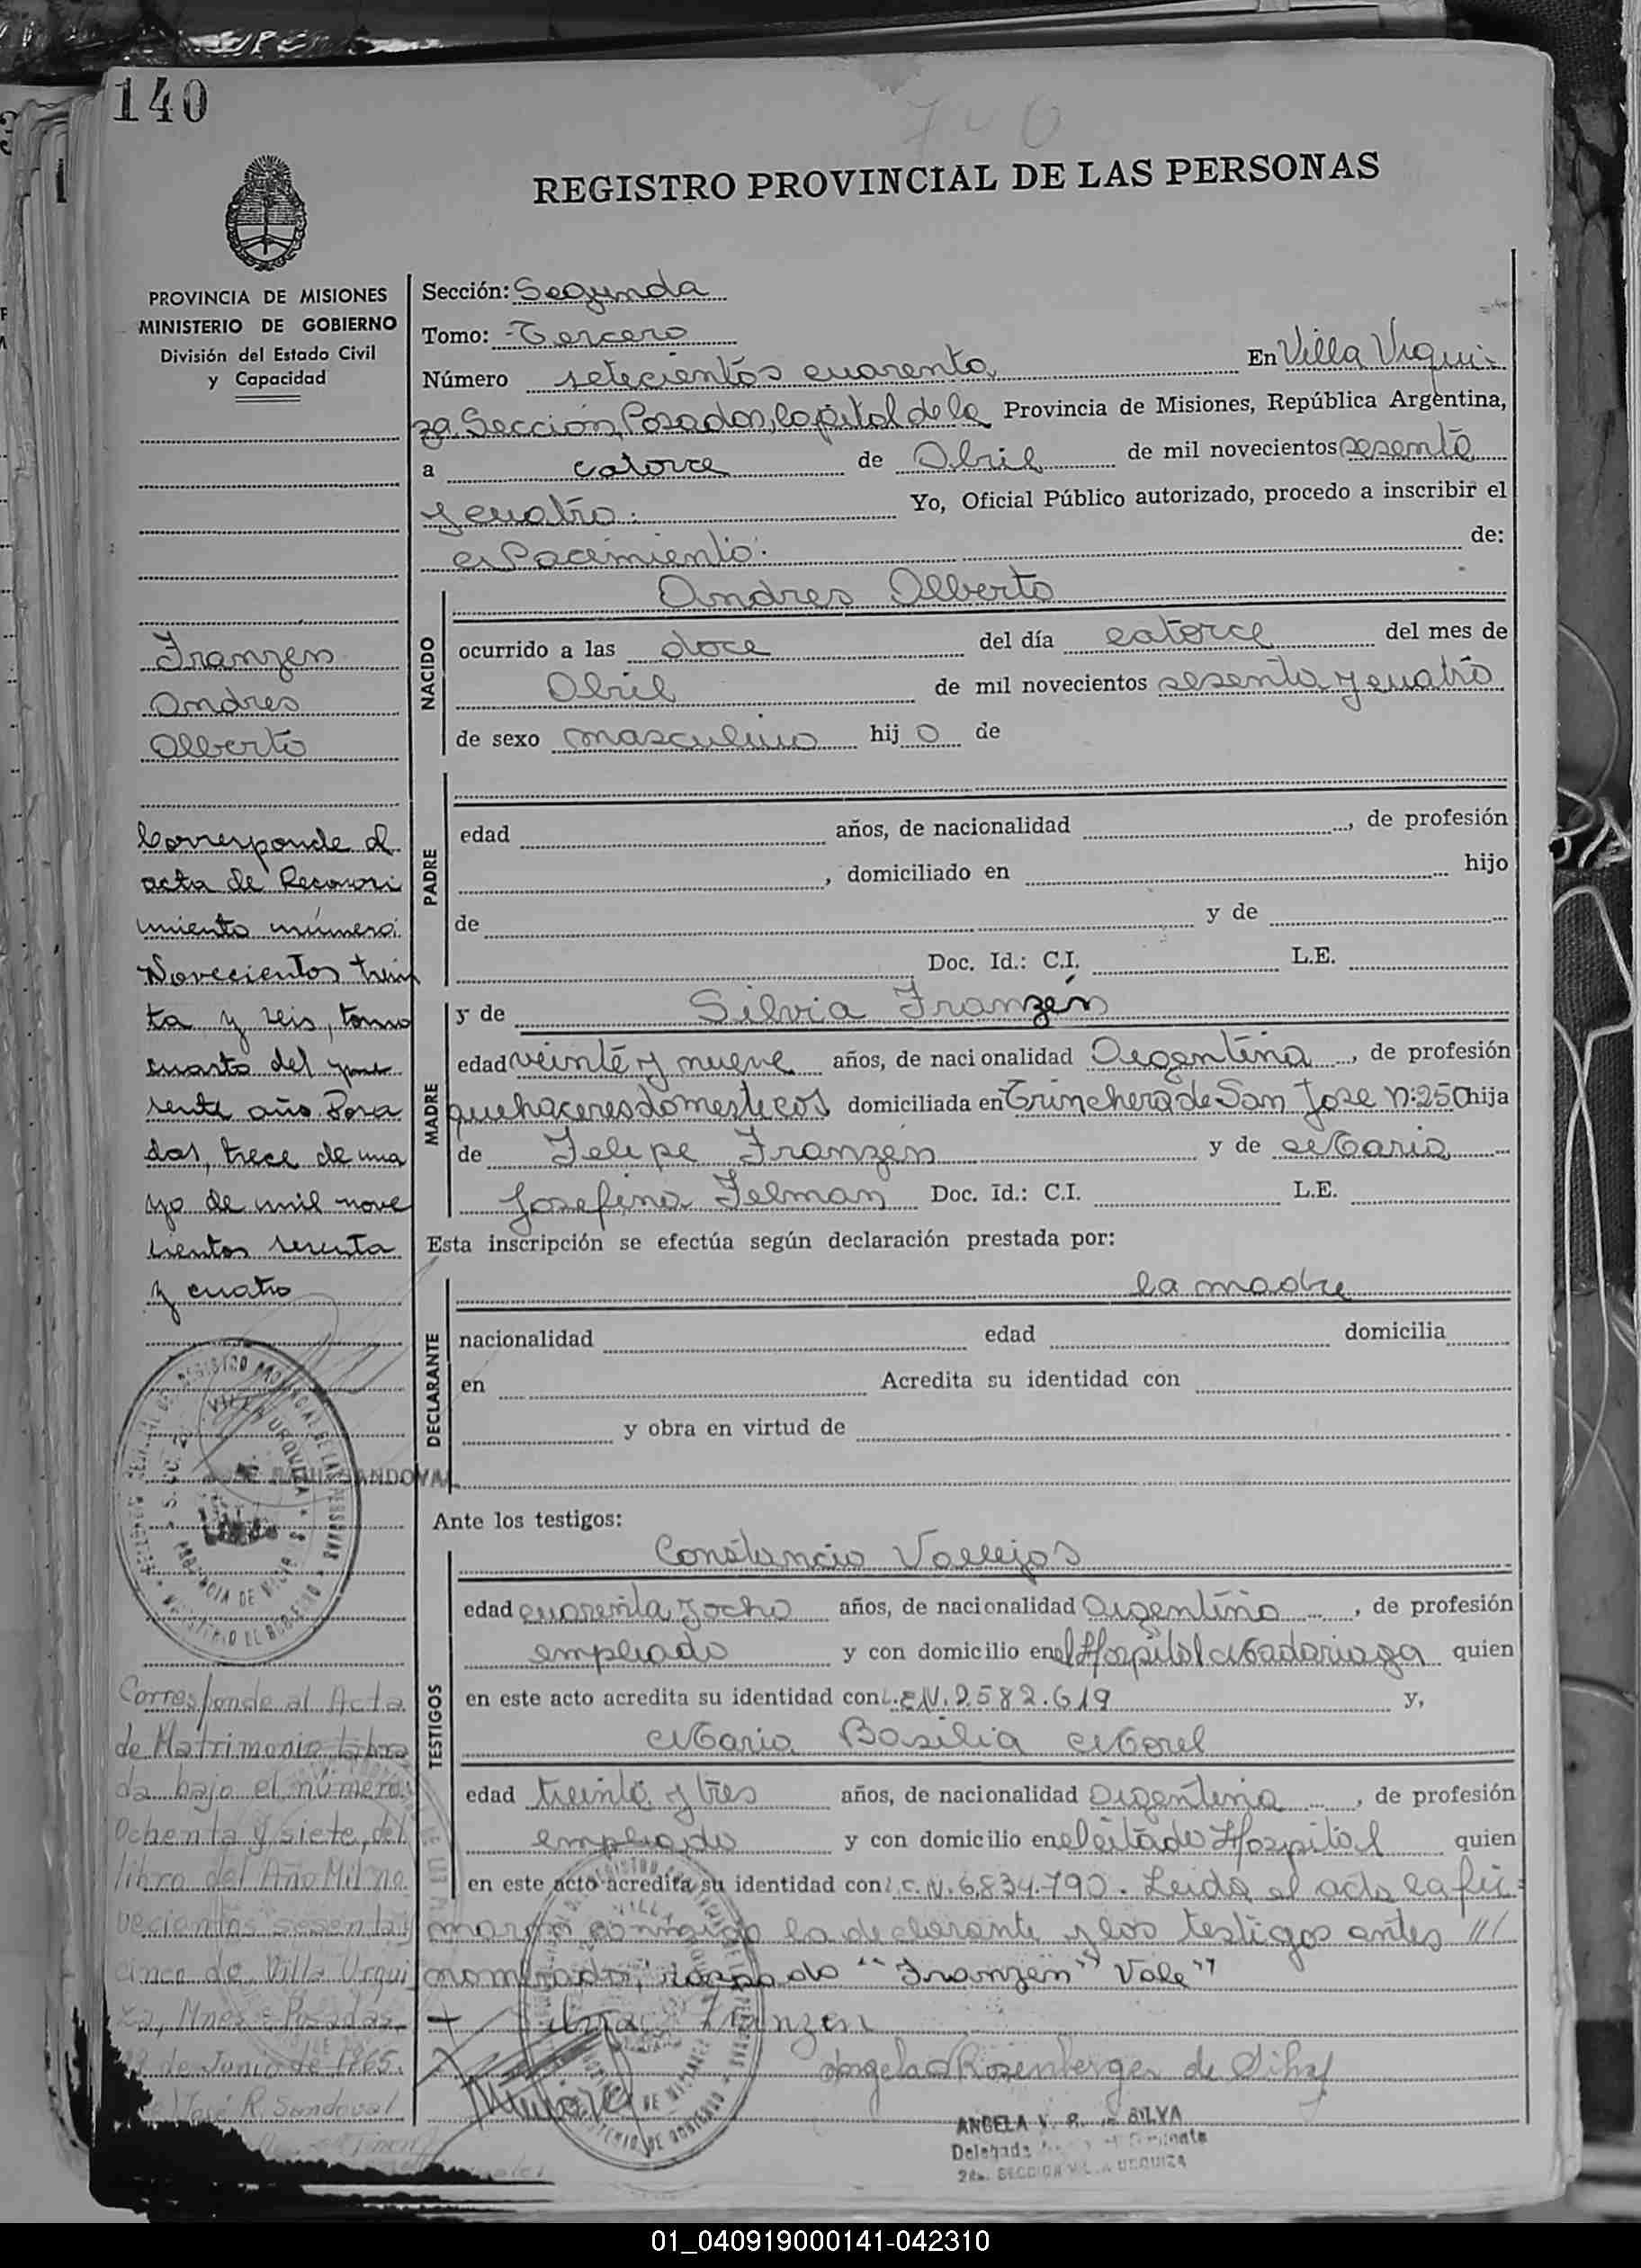 140
740
REGISTRO PROVINCIAL DE LAS PERSONAS
PROVINCIA DE MISIONES
MINISTERIO DE GOBIERNO
División del Estado Civil
y Capacidad
Franzen
Andres
Alberto
Corresponde al
acta de Reconoci
miento número
Novecientos trein
ta y seis, tomo
cuarto del pre
sente año. Posa
das, trece de ma
yo de mil nove
cientos sesenta
y cuatro
SANDOVAL
Corresponde al Acta
de Matrimonio labra
da bajo el número
Ochenta y siete, del
libro del Año Mil no
vecientos sesenta y
cinco de Villa Urqui
za, Mnes = Posadas,
de Junio de 1965.
José R. Sandoval
Sección: Segunda
Tomo: Tercero
Número setecientos cuarenta En Villa Urqui-
za Sección, Posadas, Capital de la Provincia de Misiones, República Argentina,
a catorce de Abril de mil novecientos sesenta
y cuatro. Yo, Oficial Público autorizado, procedo a inscribir el
Nacimiento. de:
NACIDO
Andres Alberto
ocurrido a las doce del día catorce del mes de
Abril de mil novecientos sesenta y cuatro
de sexo masculino hij o de
PADRE
edad años, de nacionalidad , de profesión
, domiciliado en hijo
de y de
Doc. Id.: C.I. L.E.
MADRE
y de Silvia Franzén
edad veinte y nueve años, de nacionalidad Argentina , de profesión
quehaceres domesticos domiciliada en Trinchera de San Jose N: 250 hija
de Felipe Franzen y de Maria
Josefina Felman Doc. Id.: C.I. L.E.
Esta inscripción se efectúa según declaración prestada por:
DECLARANTE
la madre
nacionalidad edad domicilia
en Acredita su identidad con
y obra en virtud de
Ante los testigos:
TESTIGOS
Constancio Vallejos
edad cuarenta y ocho años, de nacionalidad Argentino , de profesión
empleado y con domicilio en el Hospital Madariaga quien
en este acto acredita su identidad con L.E.N. 2.582.619 y,
Maria Basilia Morel
edad treinta y tres años, de nacionalidad Argentina , de profesión
empleado y con domicilio en el citado Hospital quien
en este acto acredita su identidad con L.C.N. 6.834.790. Leida el acta la fir-
maron conmigo la declarante y los testigos antes ///
nombrados, raspado "Franzén" Vale"
+ Silvia Franzen
Angela Rosenberger de Silva
ANGELA V. R. de SILVA
Delegada
2da. SECCION VILLA URQUIZA
01_040919000141-042310